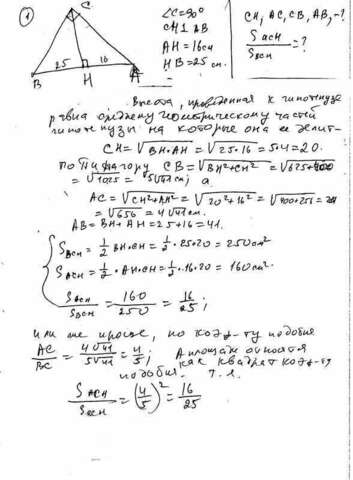 1
C
25
16
B
H
A
∠C=90°
CH⊥AB
AH=16см
HB=25 см.
CH, AC, CB, AB,-?
S_ACH/S_BCH=?
Высота, проведенная к гипотенузе
равна среднему геометрическому частей
гипотенузы на которые она ее делит-
CH=√BH·AH=√25·16=5·4=20.
по Пифагору CB=√BH²+CH²=√625+400
=√1025=5√41см; а
AC=√CH²+AH²=√20²+16²=
=√656=4√41см.
AB=BH+AH=25+16=41.
S_BCH=1/2 BH·CH=1/2·25·20=250см²
S_ACH=1/2·AH·CH=1/2·16·20=160см².
S_ACH/S_BCH=160/250=16/25;
или же проще, по коэф-ту подобия
AC/BC=4√41/5√41=4/5; А площади относятся
как квадрат коэф-та
подобия. т.е.
S_ACH/S_BCH=(4/5)²=16/25